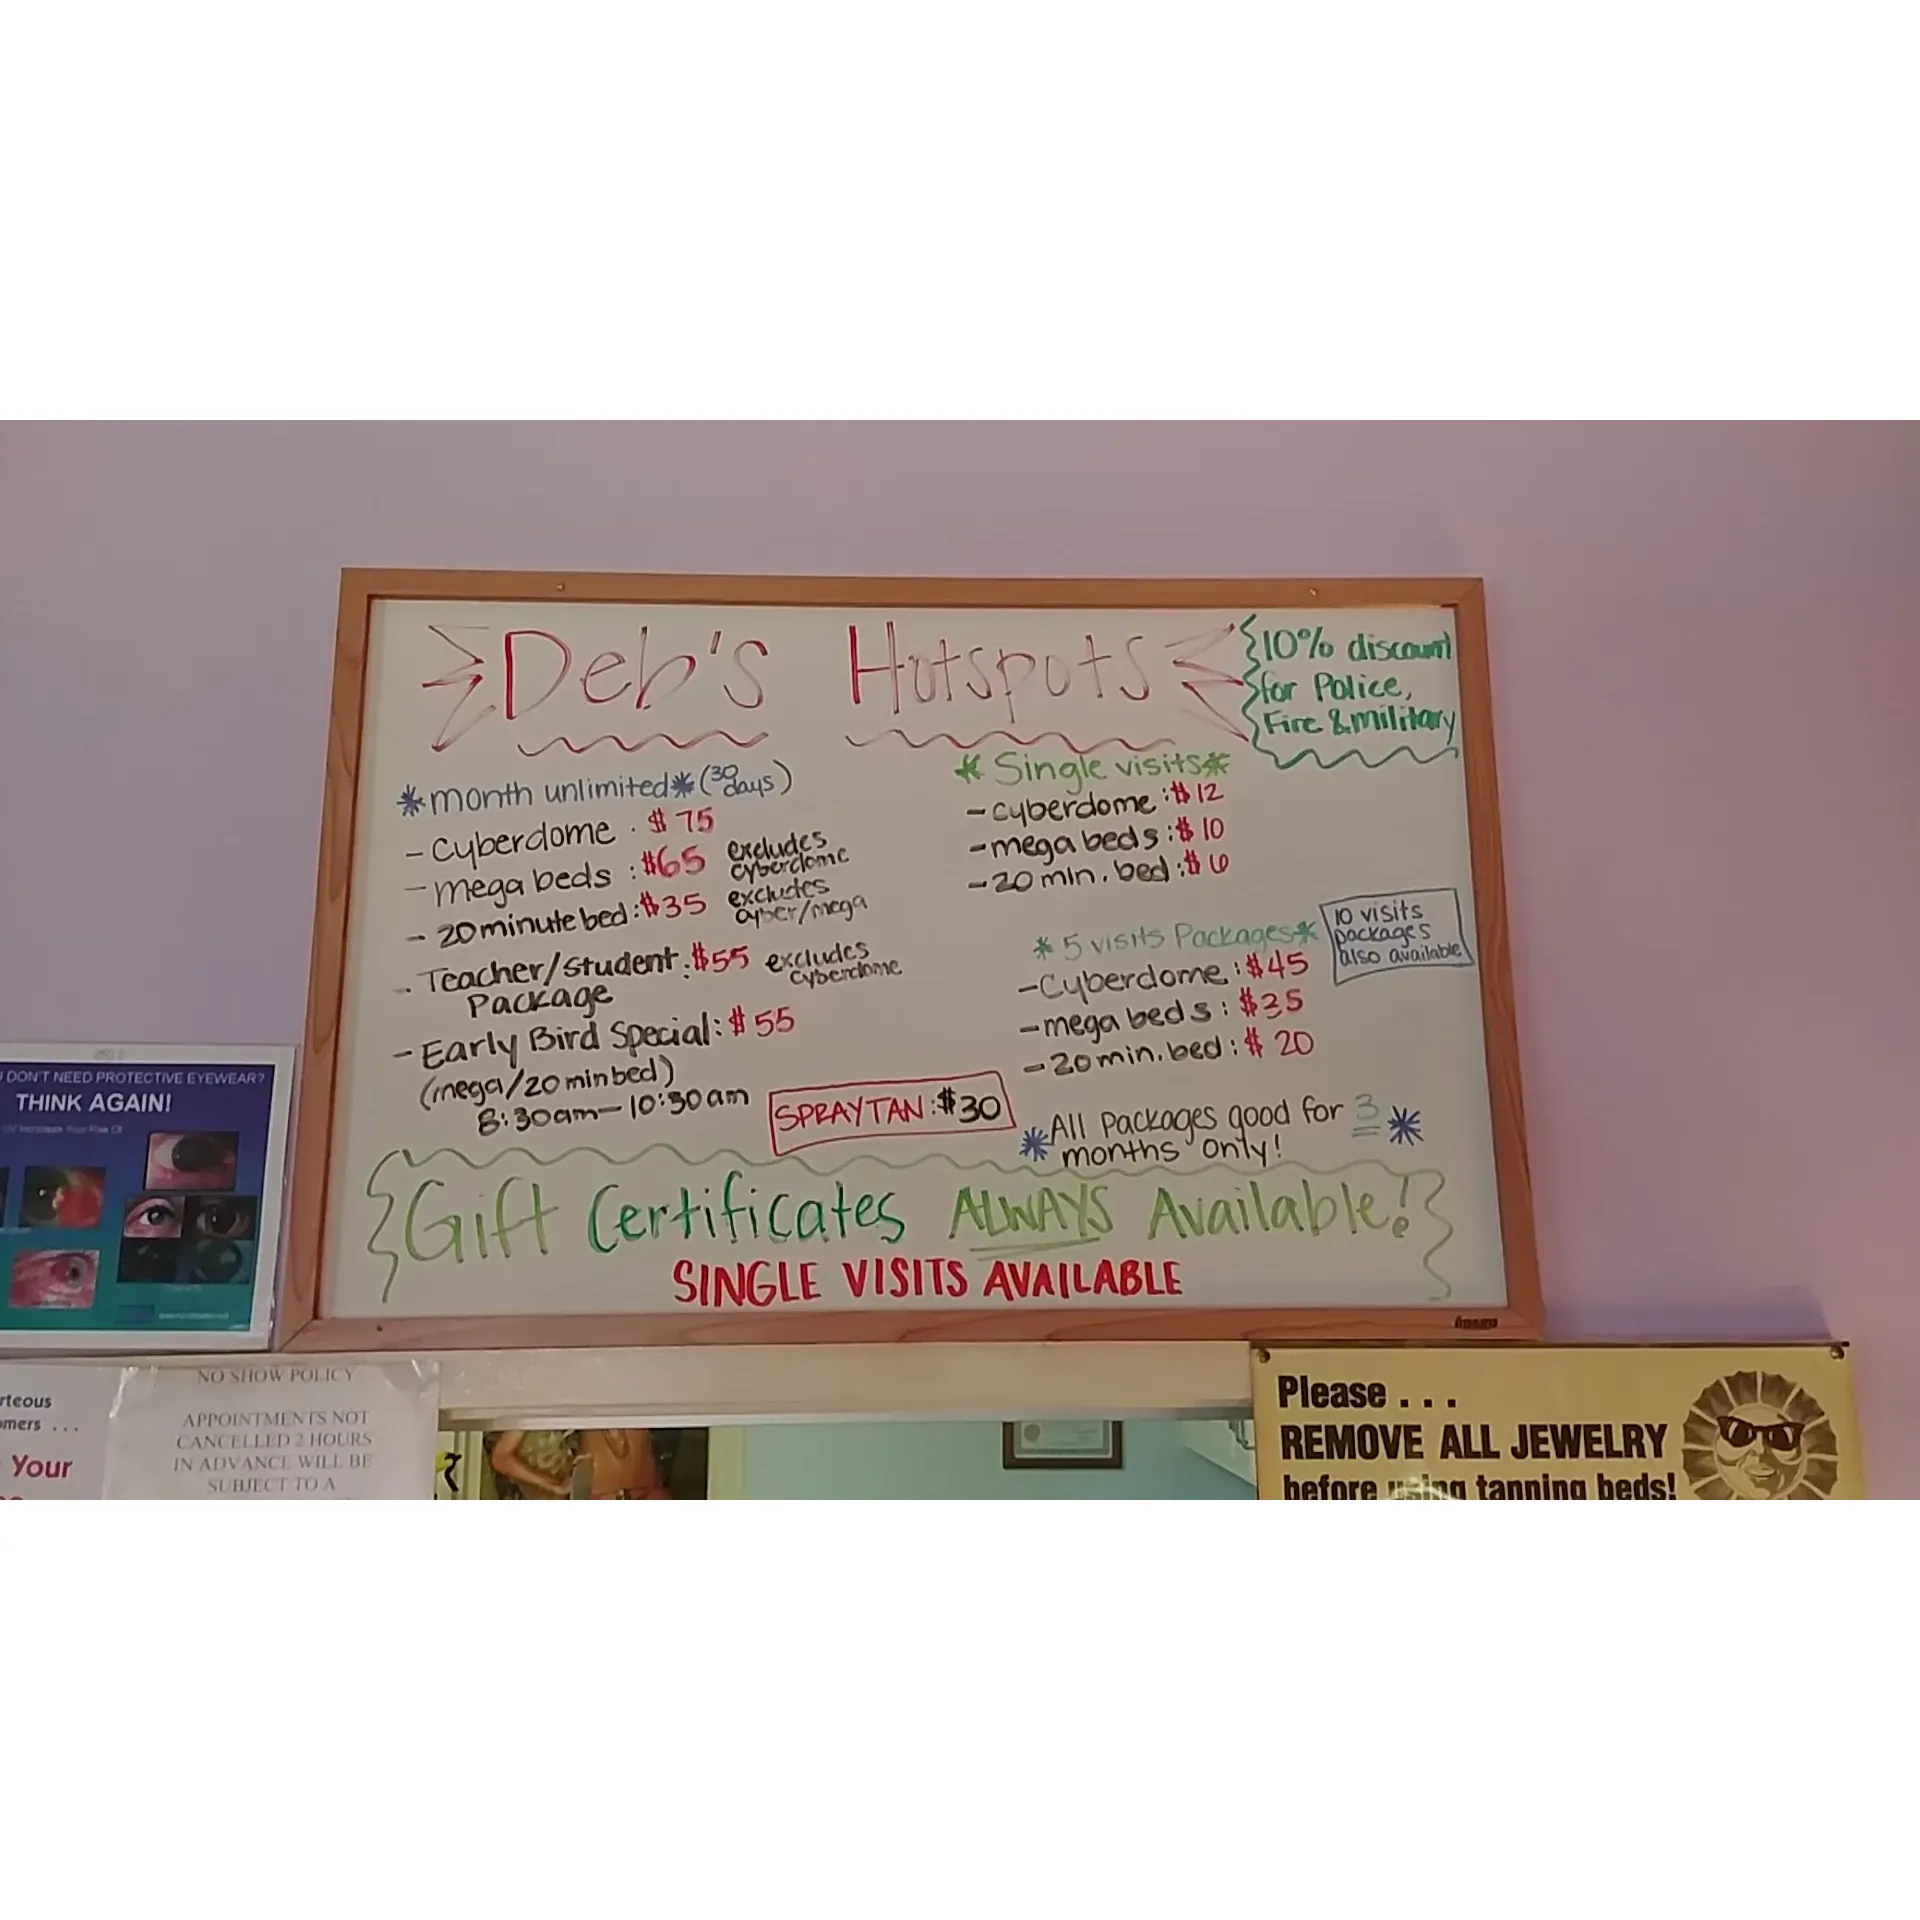 Deb's Hotspots
10% discount
for Police,
Fire & military
*month unlimited* (30 days)
- Cyberdome : $75
- mega beds : $65 excludes cyberdome
- 20 minute bed : $35 excludes cyber/mega
- Teacher/Student : $55 excludes cyberdome
Package
- Early Bird Special : $55
(mega/20 min bed)
8:30am - 10:30am
SPRAY TAN : $30
* Single visits *
- cyberdome : $12
- mega beds : $10
- 20 min. bed : $6
* 5 visits Packages *
- Cyberdome : $45
- mega beds : $35
- 20 min. bed : $20
10 visits
packages
also available
* All Packages good for 3 *
months only!
Gift Certificates ALWAYS Available!
SINGLE VISITS AVAILABLE
DON'T NEED PROTECTIVE EYEWEAR?
THINK AGAIN!
Your
NO SHOW POLICY
APPOINTMENTS NOT
CANCELLED 2 HOURS
IN ADVANCE WILL BE
SUBJECT TO A
Please . . .
REMOVE ALL JEWELRY
before using tanning beds!